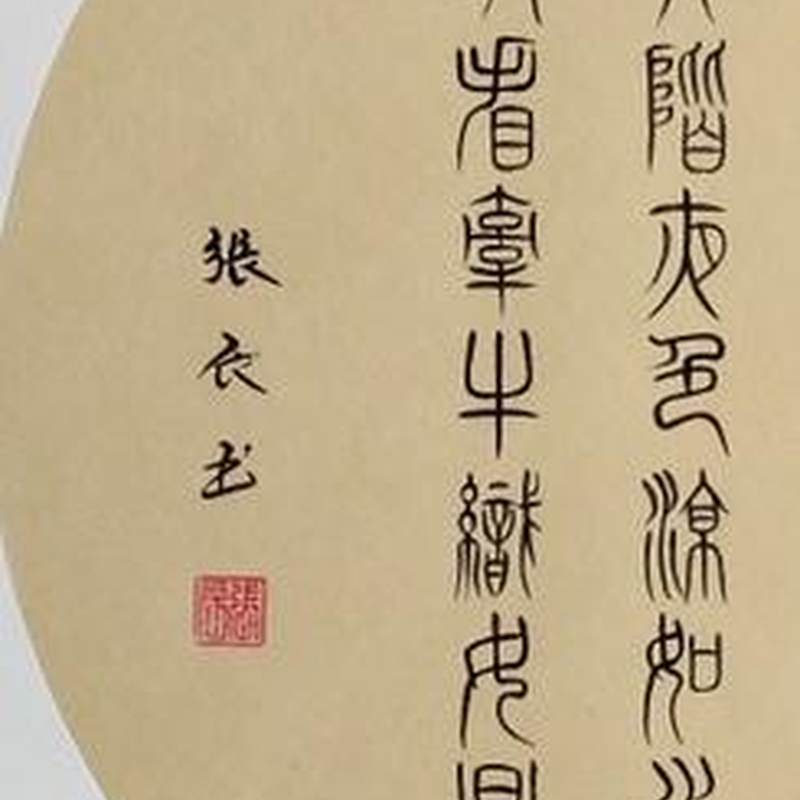 階夜色涼如水
看牽牛織女星
張衣书